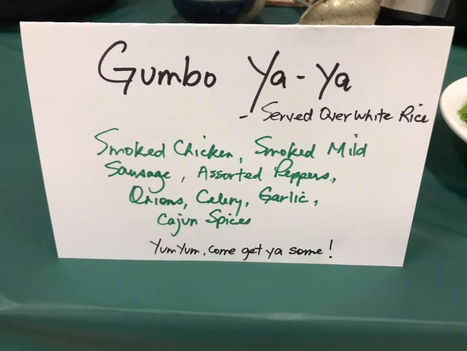 Gumbo Ya-Ya
- Served Over White Rice
Smoked Chicken, Smoked Mild
Sausage, Assorted Peppers,
Onions, Celery, Garlic,
Cajun Spices
Yum Yum, come get ya some!